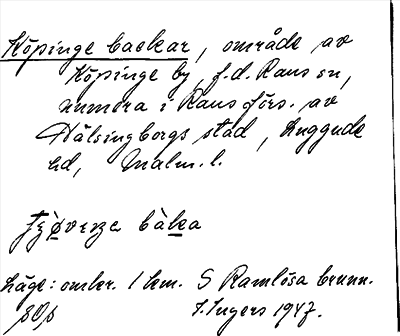 Köpinge backar, område av
Köpinge by, f.d. Raus sn,
numera i Raus förs. av
Hälsingborgs stad, Luggude
hd, Malm. l.
bàka
Läge: omkr. 1 km. S Ramlösa brunn.
I. Ingers 1947.